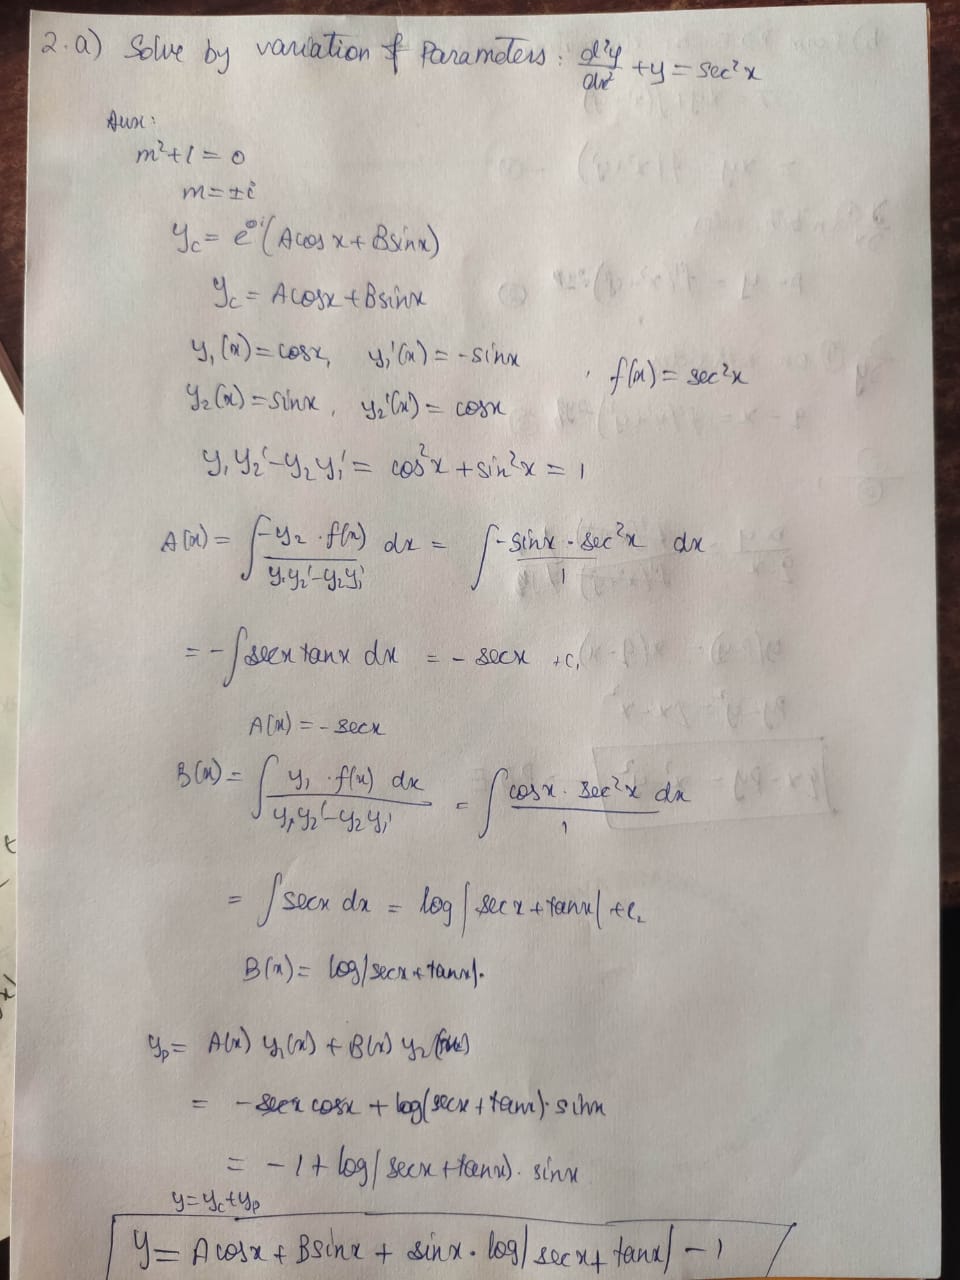 2. a) Solve by variation of Parameters: d²y/dx² + y = sec²x
Aux:
m²+1 = 0
m = ±i
y_c = e^0(A cos x + B sin x)
y_c = A cos x + B sin x
y₁(x) = cos x, y₁'(x) = -sin x
, f(x) = sec²x
y₂(x) = sin x, y₂'(x) = cos x
y₁y₂' - y₂y₁' = cos²x + sin²x = 1
A(x) = ∫ -y₂ · f(x) / y₁y₂' - y₂y₁' dx = ∫ -sin x · sec²x / 1 dx
= -∫ sec x tan x dx = - sec x + c₁
A(x) = - sec x
B(x) = ∫ y₁ · f(x) dx / y₁y₂' - y₂y₁' = ∫ cos x · sec²x dx / 1
= ∫ sec x dx = log|sec x + tan x| + c₂
B(x) = log|sec x + tan x|.
y_p = A(x) y₁(x) + B(x) y₂
= - sec x cos x + log(sec x + tan x) · sin x
= -1 + log|sec x + tan x). sin x
y = y_c + y_p
y = A cos x + B sin x + sin x · log|sec x + tan x| - 1